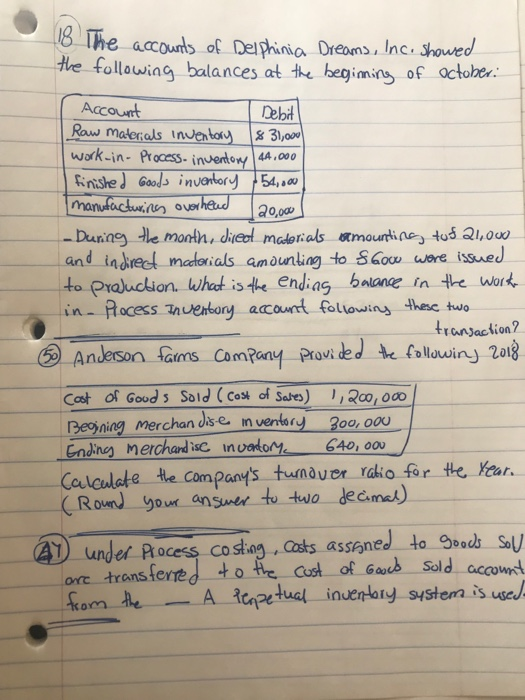 18 The accounts of Delphinia Dreams, Inc. showed
the following balances at the beginning of october:
Account Debit
Raw materials inventory $ 31,000
Work-in-Process-inventory 44,000
finished Goods inventory 54,000
manufacturing overhead 20,000
- During the month, direct materials amounting to $ 21,000
and indirect materials amounting to $6000 were issued
to production. What is the ending balance in the work
in-Process Inventory account following these two
transaction?
50 Anderson farms Company provided the following 2018
Cost of Goods Sold (Cost of Sales) 1,200,000
Begining merchandise inventory 300,000
Ending merchandise inventory 640,000
Calculate the company's turnover ratio for the Year.
(Round your answer to two decimal)
47 under Process costing, costs assgned to goods sol
are transferred to the cost of Goods sold account
from the — A Perpetual inventory system is used.